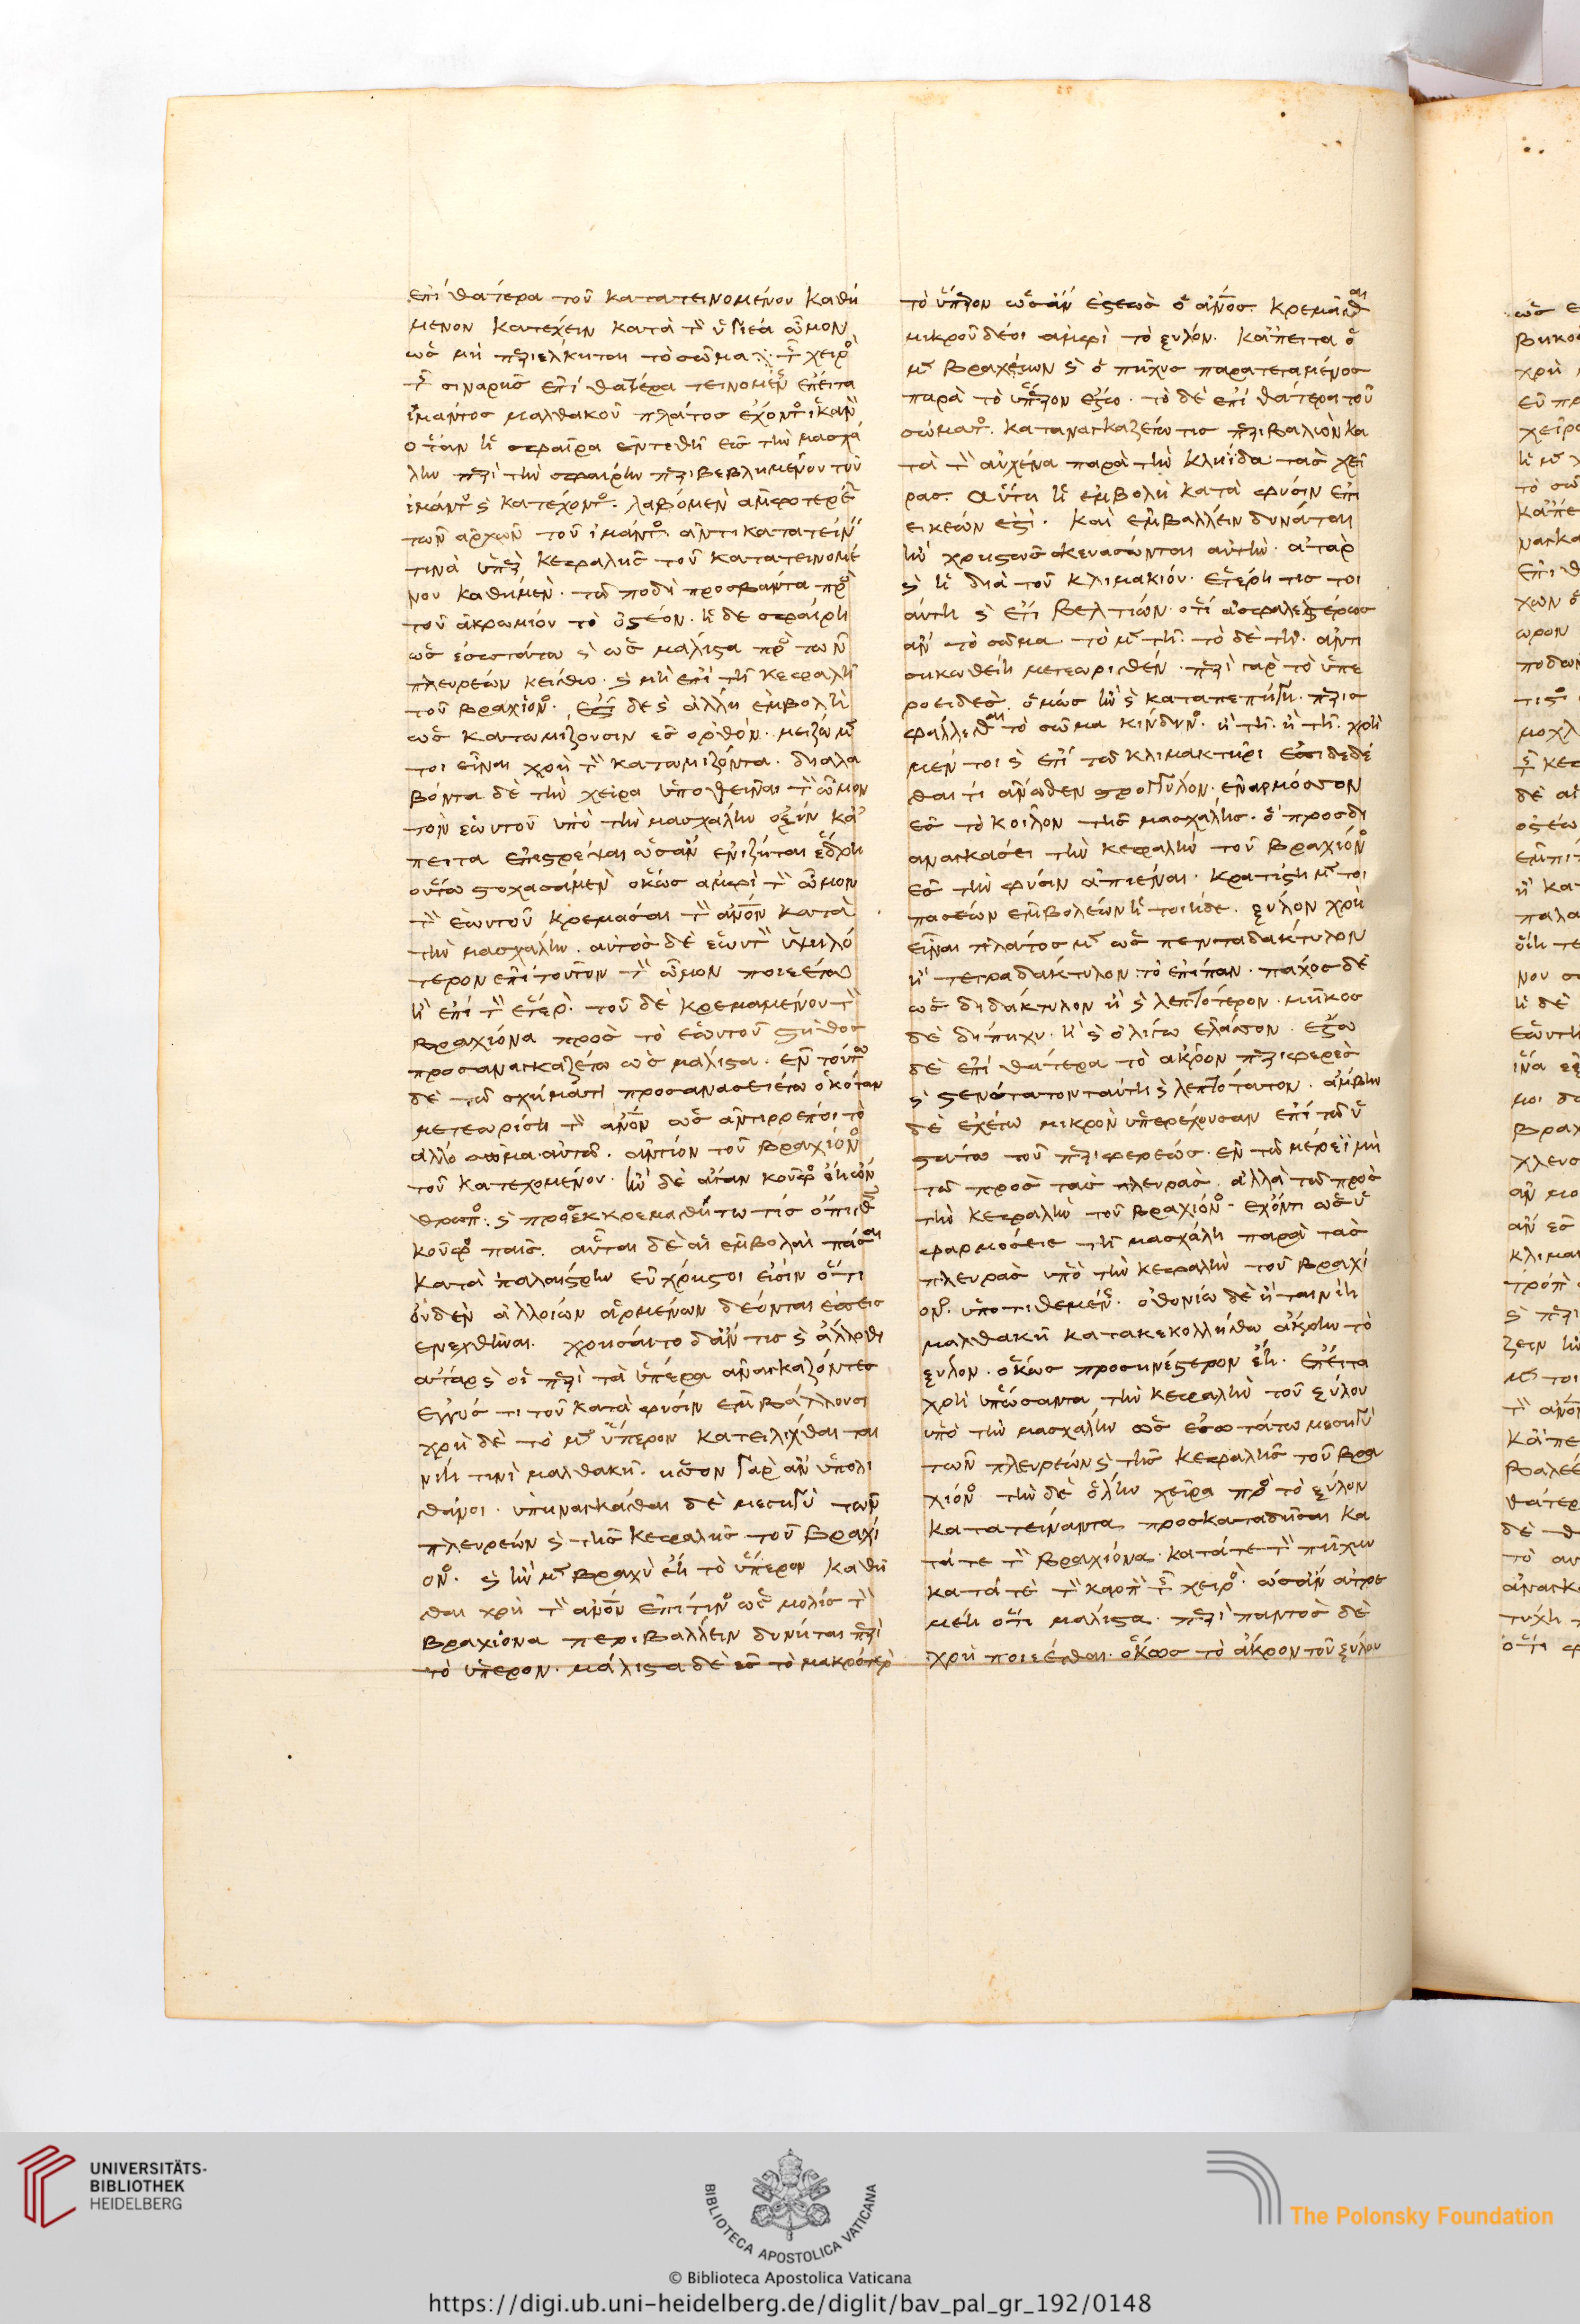 ἐπὶ θάτερα τοῦ κατατεινομένου καθή
μενον κατέχειν κατὰ τ̀ ὑγιέα ὦμον
ὡς μὴ περιέλκηται τὸ σῶμα ⁘ τ̃ χειρὸ
τ̃ σιναρῆς ἐπὶ θάτερα τεινομέν ἔπειτα
ἱμάντος μαλθακοῦ πλάτος ἔχοντ ἱκαν
ὅταν ἡ σφαῖρα ἐντεθῇ ἐς τὴν μασχά
λην περὶ τὴν σφαίρην περιβεβλημένου τοῦ
ἱμάντ ϗ κατέχοντ. λαβόμεν ἀμφοτερέ
τῶν ἀρχῶν τοῦ ἱμάντ ἀντικατατείν
τινὰ ὑπὲρ κεφαλῆς τοῦ κατατεινομέ
νου καθήμεν. τῷ ποδὶ προσβάντα πρ
τοῦ ἀκρωμίου τὸ ὀστέον. ἡ δὲ σφαίρη
ὡς ἐσωτάτω ϗ ὡς μάλιστα πρ τῶν
πλευρέων κείσθω. ϗ μὴ ἐπὶ τῇ κεφαλῇ
τοῦ βραχίον. ἔστι δὲ ϗ ἄλλη ἐμβολὴ
ὡς κατωμίζουσιν ἐς ὀρθόν. μείζω μ
τοι εἶναι χρὴ τ̀ κατωμίζοντα. διαλα
βόντα δὲ τὴν χεῖρα ὑποθεῖναι τ̀ ὦμον
τὸν ἑωυτοῦ ὑπὸ τὴν μασχάλην ὀξὺν κά
πειτα ἐπιστρέψαι ὡς ἂν ἐνίζηται ἕδρη
οὕτω στοχασάμεν ὅκως ἀμφὶ τ̀ ὦμον
τ̀ ἑωυτοῦ κρεμάσαι τ̀ ἄνον κατὰ
τὴν μασχάλην. αὐτὸς δὲ ἑωυτ ὑψηλό
τερον ἐπὶ τοῦτον τ̀ ὦμον ποιεέτω
ἢ ἐπὶ τ̀ ἕτερ. τοῦ δὲ κρεμαμένου τ̀
βραχίονα πρὸς τὸ ἑωυτοῦ στῆθος
προσαναγκαζέτω ὡς μάλιστα. ἐν τούτω
δὲ τῷ σχήματι προσανασειέτω ὁκόταν
μετεωρίση τ̀ ἄνον ὡς ἀντιρρέποι τὸ
ἄλλο σῶμα αὐτῷ. ἀντίον τοῦ βραχίον
τοῦ κατεχομένου. ἢν δὲ ἄγαν κοῦφ ἔη ὤν
θρωπ: ϗ προσεκκρεμασθήτω τις ὄπισθ
κοῦφ παῖς. αὗται δὲ αἱ ἐμβολαὶ πᾶσαι
κατὰ παλαίστρην εὔχρηστοι εἰσὶν ὅτι
οὐδὲν ἀλλοίων ἀρμένων δέονται ἐσεισ
ενεχθῆναι. χρήσαιτο δ' ἄν τις ϗ ἄλλοθι
ἀτὰρ ϗ οἱ περὶ τὰ ὕπερα ἀναγκάζοντες
ἐγγύς τι τοῦ κατὰ φύσιν ἐμβάλλουσι
χρὴ δὲ τὸ μ ὕπερον κατειλίχθαι ται
νίη τινὶ μαλθακῇ. ἧσσον γὰρ ἂν ὑπολι
σθάνοι. ὑπηναγκάσθαι δὲ μεσηγὺ τῶν
πλευρέων ϗ τῆς κεφαλῆς τοῦ βραχί
ον. ϗ ἢν μ βραχὺ ἔη τὸ ὕπερον καθῆ
σθαι χρὴ τ̀ ἄνον ἐπί τιν ὡς μόλις τ̀
βραχίονα περιβάλλειν δύνηται περὶ
τὸ ὕπερον. μάλιστα δὲ ἐς τὸ μακρότερ
τὸ ὕπερον ὡς ἂν ἑστεὼς ὁ ἄνος κρεμαμαι
μικροῦ δέοι ἀμφὶ τὸ ξύλον. κἄπειτα ὁ
μ βραχίων ϗ ὁ πῆχυς παρατεταμένος
παρὰ τὸ ὕπερον ἔστω. τὸ δὲ ἐπὶ θάτερα τοῦ
σώματ. καταναγκαζέτω τις περιβαλὼν κα
τὰ τ̀ αὐχένα παρὰ τὴν κληῖδα τὰς χεῖ
ρας. αὕτη ἡ ἐμβολὴ κατὰ φύσιν ἐπι
εικέων ἐστὶ. καὶ ἐμβάλλειν δύναται
ἢν χρηστῶς σκευάσωνται αὐτὴν. ἀτὰρ
ϗ ἡ διὰ τοῦ κλιμακίου. ἑτέρη τις τοι
αύτη ϗ ἔτι βελτίων. ὅτι ἀσφαλεστέρως
ἂν τὸ σῶμα. τὸ μ τῇ. τὸ δὲ τῇ. ἀντι
σηκωθείη μετεωρισθέν. περὶ γὰρ τὸ ὑπε
ροειδὲς ὁ ὦμος ἢν ϗ καταπεπήγη. περισ
φάλλεσθαι τὸ σῶμα κίνδυν. ἢ τῇ. ἢ τῇ. χρὴ
μέντοι ϗ ἐπὶ τῷ κλιμακτῆρι ἐπιδεδέ
σθαι τὶ ἄνωθεν στρογγύλον. ἐναρμόσσον
ἐς τὸ κοῖλον τῆς μασχάλης. ὃ προσδι
αναγκάσει τὴν κεφαλὴν τοῦ βραχίον
ἐς τὴν φύσιν ἀπιέναι. κρατίστη μ τοι
πασέων ἐμβολέων ἡ τοιήδε. ξύλον χρὴ
εἶναι πλάτος μ ὡς πενταδάκτυλον
ἢ τετραδάκτυλον: τὸ ἐπίπαν. πάχος δὲ
ὡς διδάκτυλον ἢ ϗ λεπτότερον. μῆκος
δὲ δίπηχυ. ἢ ϗ ὀλίγω ἔλασσον. ἔστω
δὲ ἐπὶ θάτερα τὸ ἄκρον περιφερὲς
ϗ στενότατον ταύτη ϗ λεπτότατον. ἄμβην
δὲ ἐχέτω μικρὸν ὑπερέχουσαν ἐπὶ τῷ ὑ
στάτω τοῦ περιφερέως. ἐν τῷ μέρεϊ μὴ
τῷ πρὸς τὰς πλευρὰς. ἀλλὰ τῷ πρὸς
τὴν κεφαλὴν τοῦ βραχίον. ἔχοντι ὡς ὑ
φαρμόσειε τῇ μασχάλη παρὰ τὰς
πλευρὰς ὑπὸ τὴν κεφαλὴν τοῦ βραχί
ον. ὑποτιθέμεν. ὀθονίω δὲ ἢ ταινίη
μαλθακῇ κατακεκολλήσθω ἄκρην τὸ
ξύλον. ὅκως προσηνέστερον ἔη. ἔπειτα
χρὴ ὑπώσαντα τὴν κεφαλὴν τοῦ ξύλου
ὑπὸ τὴν μασχάλην ὡς ἐσωτάτω μεσηγὺ
τῶν πλευρέων ϗ τῆς κεφαλῆς τοῦ βρα
χίον τὴν δὲ ὅλην χεῖρα πρ τὸ ξύλον
κατατείναντα προσκαταδῆσαι κα
τά τε τ̀ βραχίονα. κατά τε τ̀ πῆχυν
κατά τε τ̀ καρπ τ̃ χειρ. ὡς ἂν ἀτρε
μέη ὅτι μάλιστα. περὶ παντὸς δὲ
χρὴ ποιέεσθαι. ὅκως τὸ ἄκρον τοῦ ξύλου
UNIVERSITÄTS-
BIBLIOTHEK
HEIDELBERG
BIBLIOTECA APOSTOLICA VATICANA
The Polonsky Foundation
© Biblioteca Apostolica Vaticana
https://digi.ub.uni-heidelberg.de/diglit/bav_pal_gr_192/0148